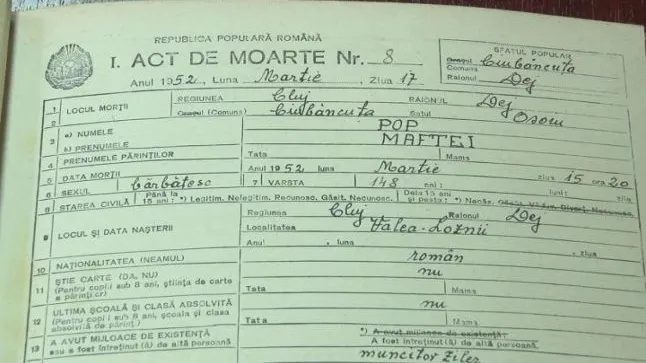 REPUBLICA POPULARĂ ROMÂNĂ
I. ACT DE MOARTE Nr. 8
Anul 1952, Luna Martie, Ziua 17
SFATUL POPULAR
Orașul Comuna Ciubăncuța
Raionul Dej
1 LOCUL MORȚII REGIUNEA Cluj RAIONUL Dej
2 Orașul (Comuna) Ciubăncuța Satul
3 a) NUMELE POP
b) PRENUMELE MAFTEI
4 PRENUMELE PĂRINȚILOR Tata Mama
5 DATA MORȚII Anul 1952 luna Martie ziua 15 ora 20
6 SEXUL bărbătesc 7 VARSTA 148 ani: luni: zile
8 STAREA CIVILĂ Până la 15 ani: *) Legitim, Nelegitim, Recunosc, Găsit, Necunosc. Dela 15 ani și peste: *) Necăs.
9 LOCUL ȘI DATA NAȘTERII Regiunea Cluj Raionul Dej
Localitatea Valea-Loznii
Anul , luna , ziua
10 NAȚIONALITATEA (NEAMUL) român
11 ȘTIE CARTE (DA, NU) nu
(Pentru copii sub 8 ani, știința de carte a părinților) Tata Mama
12 ULTIMA ȘCOALĂ ȘI CLASĂ ABSOLVITĂ nu
(Pentru copii sub 8 ani, școala și clasa absolvită de părinți) Tata Mama
13 A AVUT MIJLOACE DE EXISTENȚĂ *) A avut mijloace de existență:
sau a fost întreținut (ă) de altă persoană A fost întreținut (ă) de altă persoană
muncitor ziler